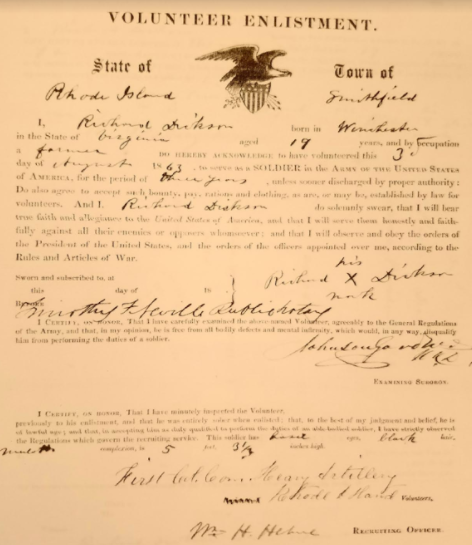 VOLUNTEER ENLISTMENT.
State of Town of
Rhode Island Smithfield
I, Richard Dickson born in Winchester
in the State of Virginia aged 19 years, and by occupation
a farmer DO HEREBY ACKNOWLEDGE to have volunteered this 3d
day of August 1863, to serve as a SOLDIER in the ARMY OF THE UNITED STATES
OF AMERICA, for the period of three years, unless sooner discharged by proper authority:
Do also agree to accept such bounty, pay, rations and clothing, as are, or may be, established by law for
volunteers. And I Richard Dickson do solemnly swear, that I will bear
true faith and allegiance to the United States of America, and that I will serve them honestly and faith-
fully against all their enemies or opposers whomsoever; and that I will observe and obey the orders of
the President of the United States, and the orders of the officers appointed over me, according to the
Rules and Articles of War.
his
Richard X Dickson
mark
SWORN and subscribed to, at
this day of 18
BEFORE
I CERTIFY, ON HONOR, That I have carefully examined the above named Volunteer, agreeably to the General Regulations
of the Army, and that, in my opinion, he is free from all bodily defects and mental infirmity, which would, in any way, disqualify
him from performing the duties of a soldier.
EXAMINING SURGEON.
I CERTIFY, ON HONOR, That I have minutely inspected the Volunteer,
previously to his enlistment, and that he was entirely sober when enlisted; that, to the best of my judgment and belief, he is
of lawful age; and that, in accepting him as duly qualified to perform the duties of an able-bodied soldier, I have strictly observed
the Regulations which govern the recruiting service. This soldier has eyes, black hair,
complexion, is 5 feet 3½ inches high.
First Heavy Artillery
Rhode Island Volunteers,
Wm H.
RECRUITING OFFICER.